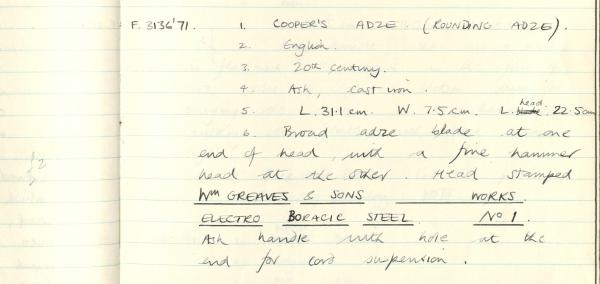 F.3136'71. 1. COOPER'S ADZE (ROUNDING ADZE).
2. English.
3. 20th century.
4. Ash, cast iron.
5. L. 31.1 cm. W. 7.5 cm. L. head 22.5cm
6. Broad adze blade at one
end of head, with a fine hammer
head at the other. Head stamped
Wm GREAVES & SONS WORKS.
ELECTRO BORACIC STEEL No 1.
Ash handle with hole at the
end for cord suspension.